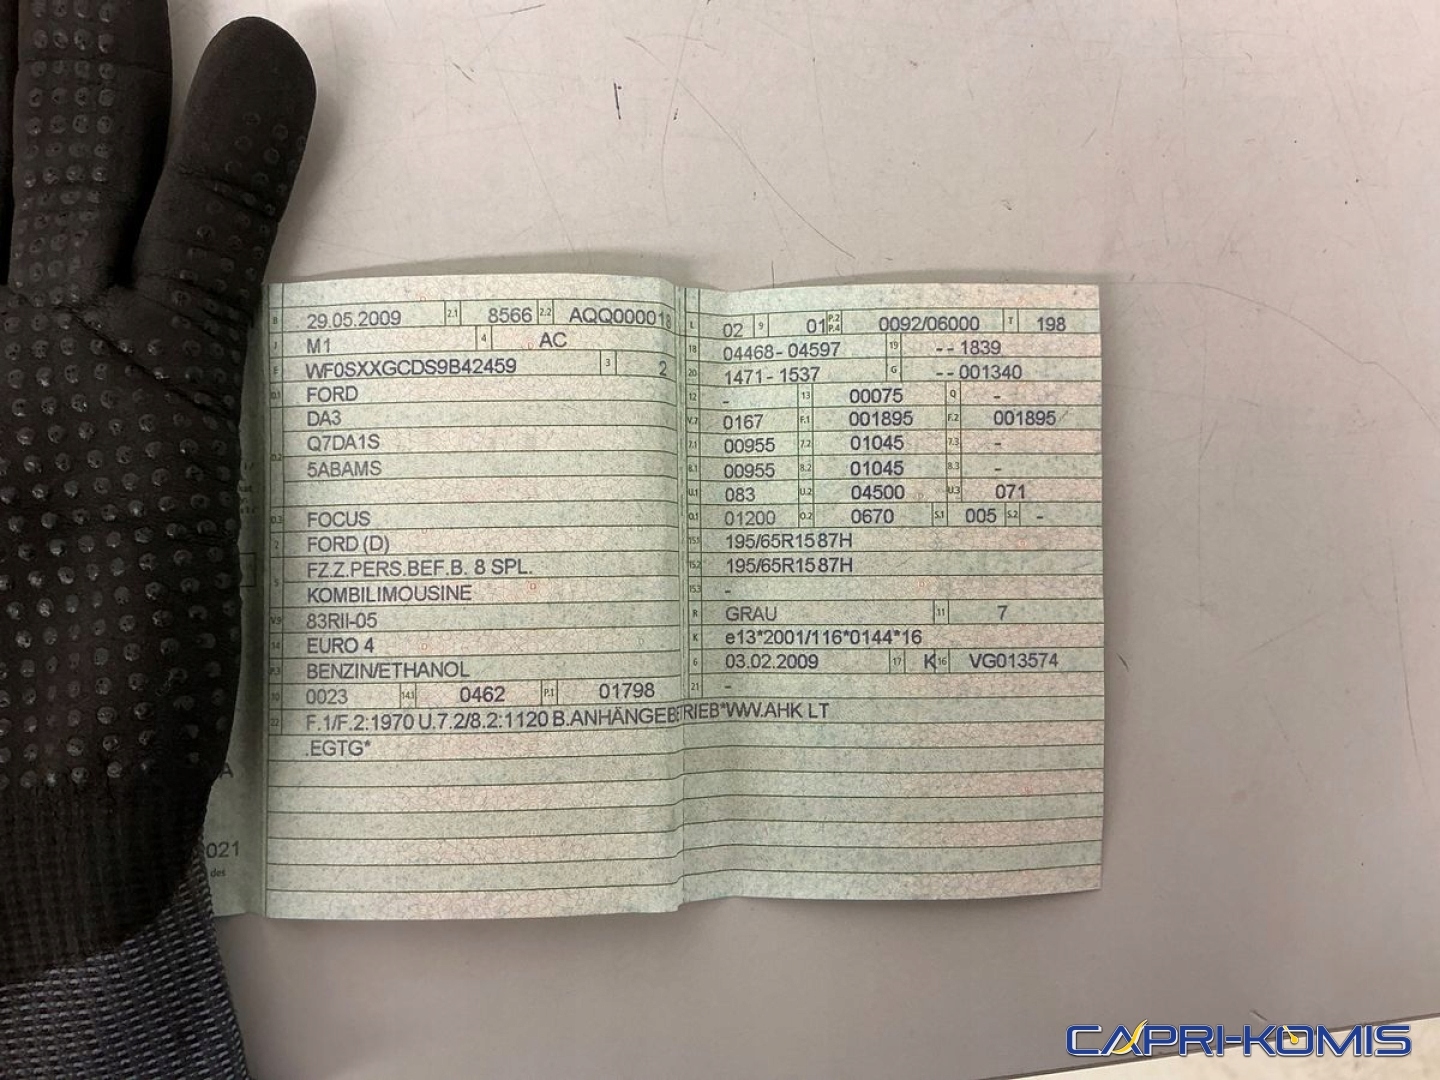 B 29.05.2009 2.1 8566 2.2 AQQ000018
J M1 4 AC
E WF0SXXGCDS9B42459 3 2
D.1 FORD
DA3
D.2 Q7DA1S
5ABAMS
D.3 FOCUS
2 FORD (D)
FZ.Z.PERS.BEF.B. 8 SPL.
5 KOMBILIMOUSINE
V.9 83RII-05
14 EURO 4
P.3 BENZIN/ETHANOL
10 0023 14.1 0462 P.1 01798
22 F.1/F.2:1970 U.7.2/8.2:1120 B.ANHÄNGEBETRIEB*VWV.AHK LT
.EGTG*
L 02 9 01 P.2 P.4 0092/06000 T 198
18 04468-04597 19 --1839
20 1471-1537 G --001340
12 - 13 00075 Q -
V.7 0167 F.1 001895 F.2 001895
7.1 00955 7.2 01045 7.3 -
8.1 00955 8.2 01045 8.3 -
U.1 083 U.2 04500 U.3 071
O.1 01200 O.2 0670 S.1 005 S.2 -
15.1 195/65R15 87H
15.2 195/65R15 87H
15.3 -
R GRAU 11 7
K e13*2001/116*0144*16
6 03.02.2009 17 K 16 VG013574
21 -
021
des
CAPRI-KOMIS